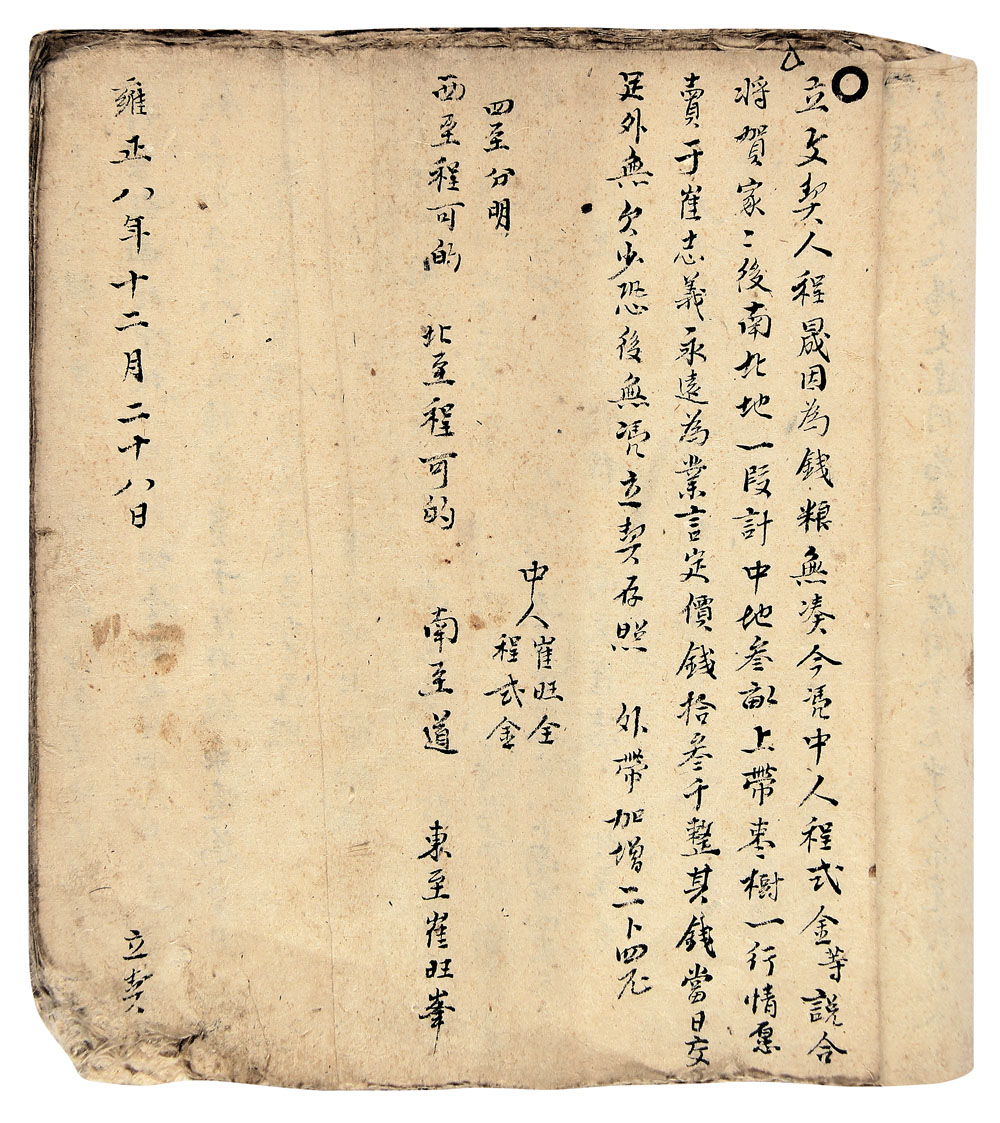 立文契人程晟因為錢粮無凑今凭中人程式金等説合
将賀家〻後南北地一段計中地叁畝上带枣樹一行情愿
賣于崔志義永遠為業言定價錢拾叁千整其錢當日交
足外無欠少恐後無凭立契存照 外带加增二卜四
中人崔旺全
程式金
四至分明
西至程可的 北至程可的 南至道 東至崔旺峯
雍正八年十二月二十八日 立契